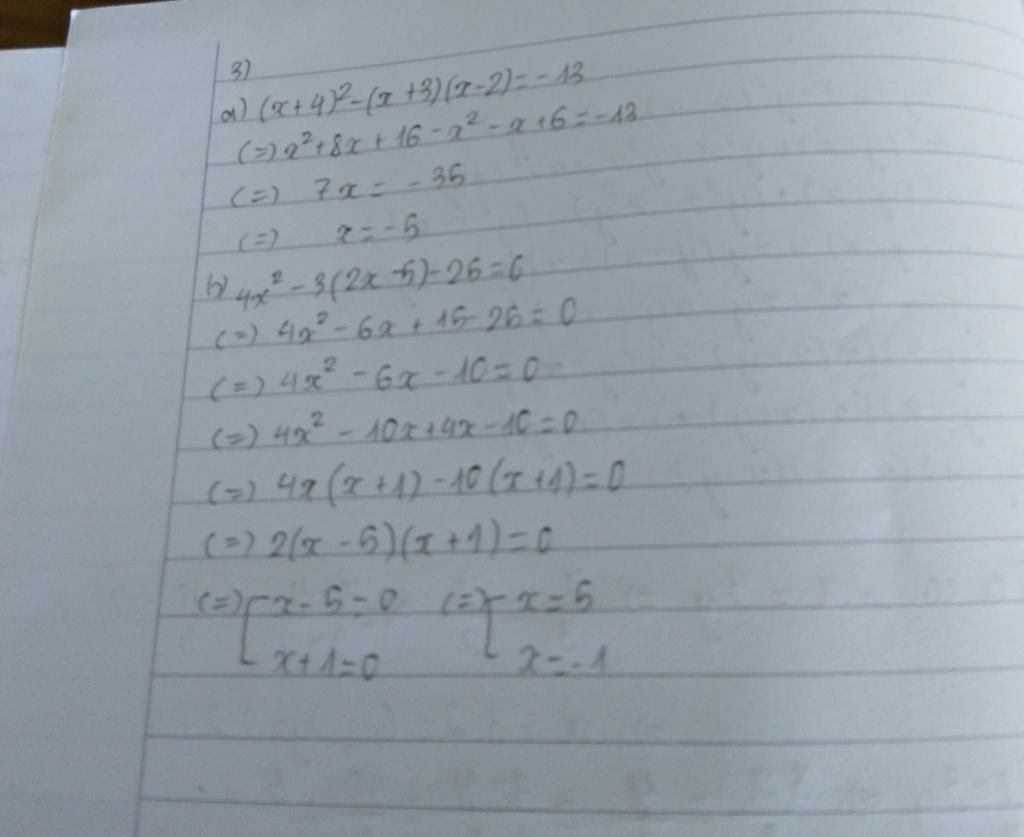 3)
a) (x+4)² - (x+3)(x-2) = -13
(=) x² + 8x + 16 - x² - x + 6 = -13
(=) 7x = -35
(=) x = -5
b) 4x² - 3(2x-5) - 25 = 0
(=) 4x² - 6x + 15 - 25 = 0
(=) 4x² - 6x - 10 = 0
(=) 4x² - 10x + 4x - 10 = 0
(=) 4x(x+1) - 10(x+1) = 0
(=) 2(x-5)(x+1) = 0
(=) [ x - 5 = 0 (=) [ x = 5
x + 1 = 0 x = -1